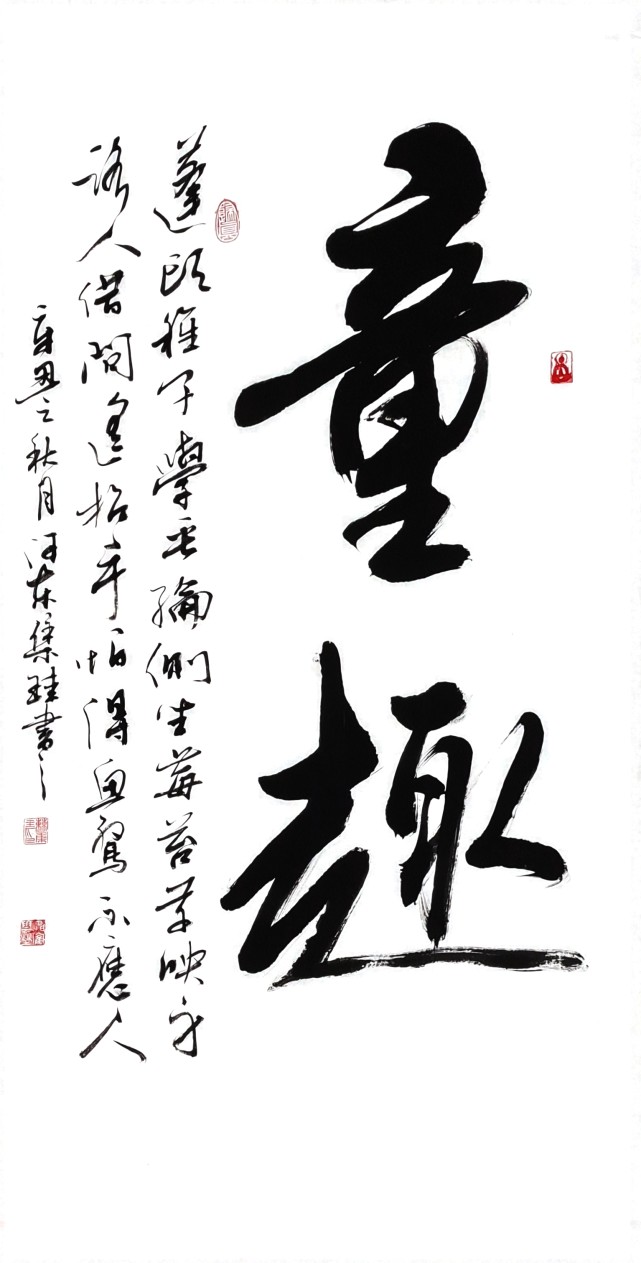 童趣
蓬頭稚子學垂綸側坐莓苔草映身
路人借問遙招手怕得魚驚不應人
辛丑之秋月河東集珪書之